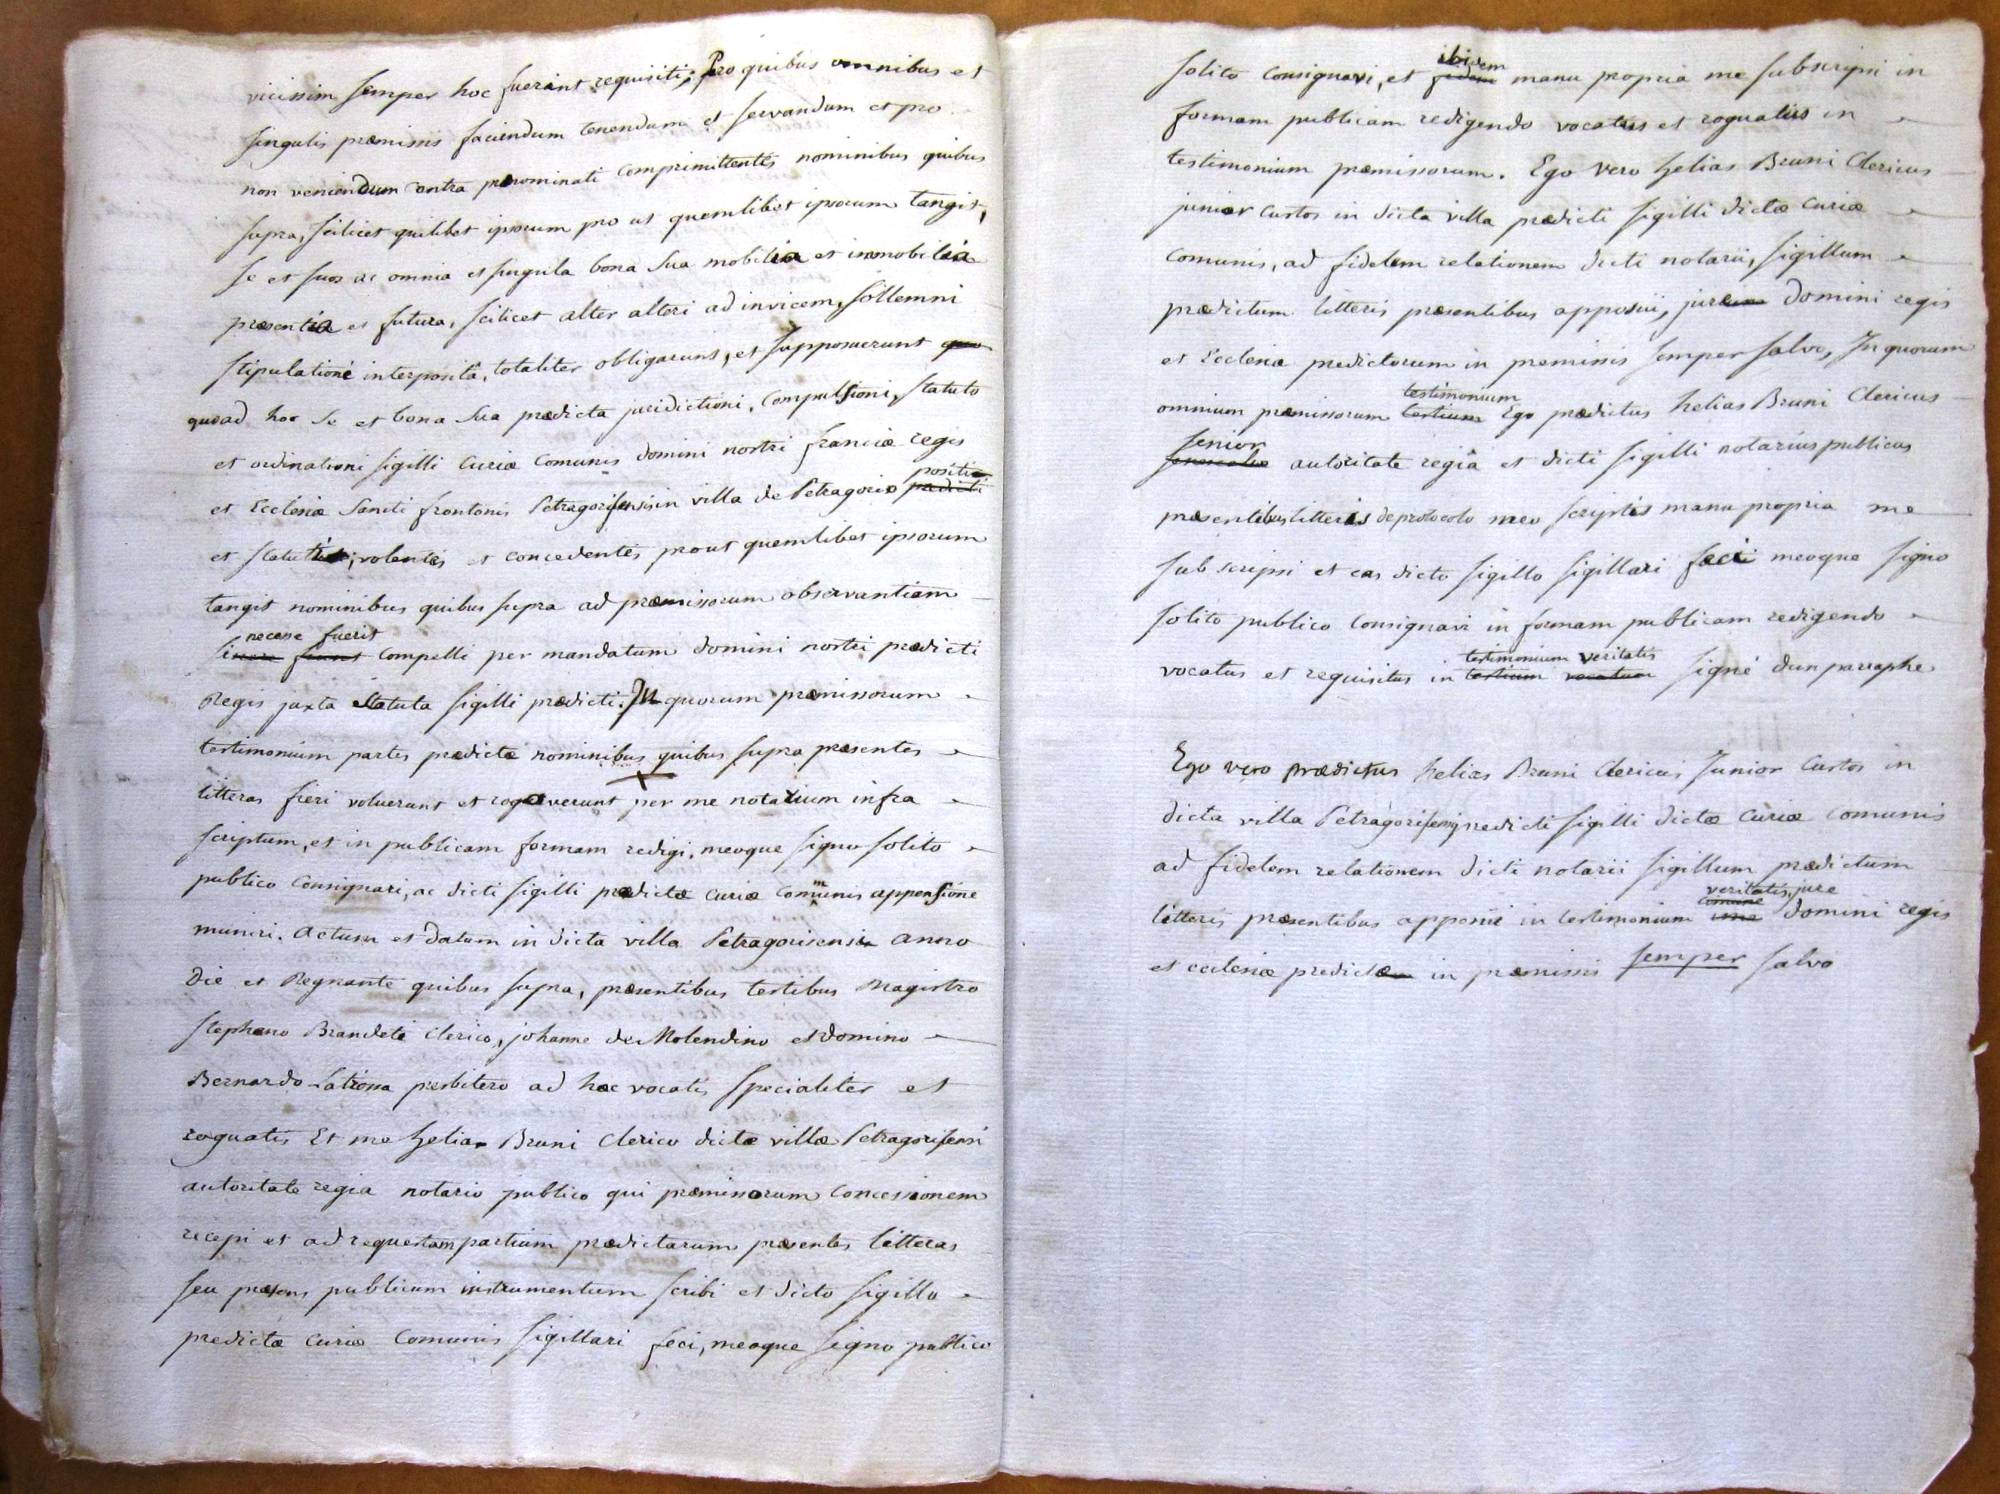 vicissim semper hoc fuerint requisiti; Pro quibus omnibus et
singulis præmissis faciendum tenendum et servandum et pro
non veniendum contra prænominati comprimittentes nominibus quibus
supra, scilicet quilibet ipsorum pro ut quemlibet ipsorum tangit,
se et suos ac omnia et singula bona sua mobilia et immobilia
præsentia et futura, scilicet alter alteri ad invicem, sollemni
stipulatione interposita, totaliter obligarunt, et supposuerunt
quoad hoc se et bona sua prædicta juridictioni, compulsioni, statuto
et ordinationi sigilli Curiæ comunis domini nostri franciæ regis
positi
et Ecclesiæ Sancti frontonis Petragorisensis in villa de Petragorio prædicti
et statuti; volentes et concedentes prout quemlibet ipsorum
tangit nominibus quibus supra ad præmissorum observantiam
necesse fuerit
compelli per mandatum domini nostri prædicti
Regis juxta statuta sigilli prædicti. In quorum præmissorum
testimonium partes prædictæ nominibus quibus supra præsentes
litteras fieri voluerunt et rogaverunt per me notarium infra
scriptum, et in publicam formam redigi, meoque signo solito
publico Consignari, ac dicti sigilli prædictæ curiæ communis appensione
muniri. Actum et datum in dicta villa Petragorisensi anno
Die et Regnante quibus supra, præsentibus testibus Magistro
Stephano Brandeti clerico, johanne de Molendino et domino
Bernardo Latrossa presbitero ad hæc vocatis specialiter et
roguatis Et me helia Bruni Clerico dictæ villæ Petragorisensi
autoritate regia notario publico qui præmissorum concessionem
recepi et ad requestam partium prædictarum præsentes litteras
seu præsens publicum instrumentum scribi et dicto sigillo
predictæ curiæ Comunis sigillari feci, meoque signo publico
ibidem
solito consignavi, et manu propria me subscripsi in
formam publicam redigendo vocatus et roguatus in
testimonium præmissorum. Ego vero helias Bruni Clericus
junior Custos in dicta villa prædicti sigilli dictæ Curiæ
Comunis, ad fidelem relationem dicti notarii, sigillum
prædictum litteris præsentibus apposui, jure domini regis
et Ecclesiæ predictorum in premissis semper salvo, In quorum
testimonium
omnium præmissorum testium Ego prædictus helias Bruni Clericus
senior
autoritate regiâ et dicti sigilli notarius publicus
præsentibus litteris de protocolo meo scriptis manu propria me
subscripsi et eas dicto sigillo sigillari feci meoque signo
solito publico Consignavi in formam publicam redigendo
testimonium veritatis
vocatus et requisitus in testium vocatum signé dun parraphe
Ego vero prædictus helias Bruni Clericus Junior Custos in
dicta villa Petragorisensi predicti sigilli dictæ Curiæ comunis
ad fidelem relationem dicti notarii sigillum prædictum
veritatis, jure
litteris præsentibus apposui in testimonium domini regis
et ecclesiæ predictæ in præmissis semper salvo